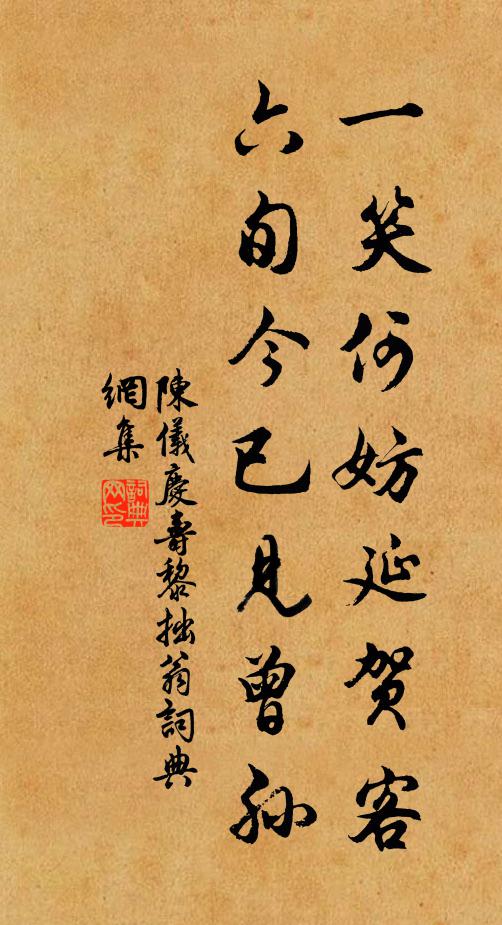 一笑何妨延贺客
六旬今已見曾孙
陳儀慶壽黎拙翁詞典
網集
詞典網印